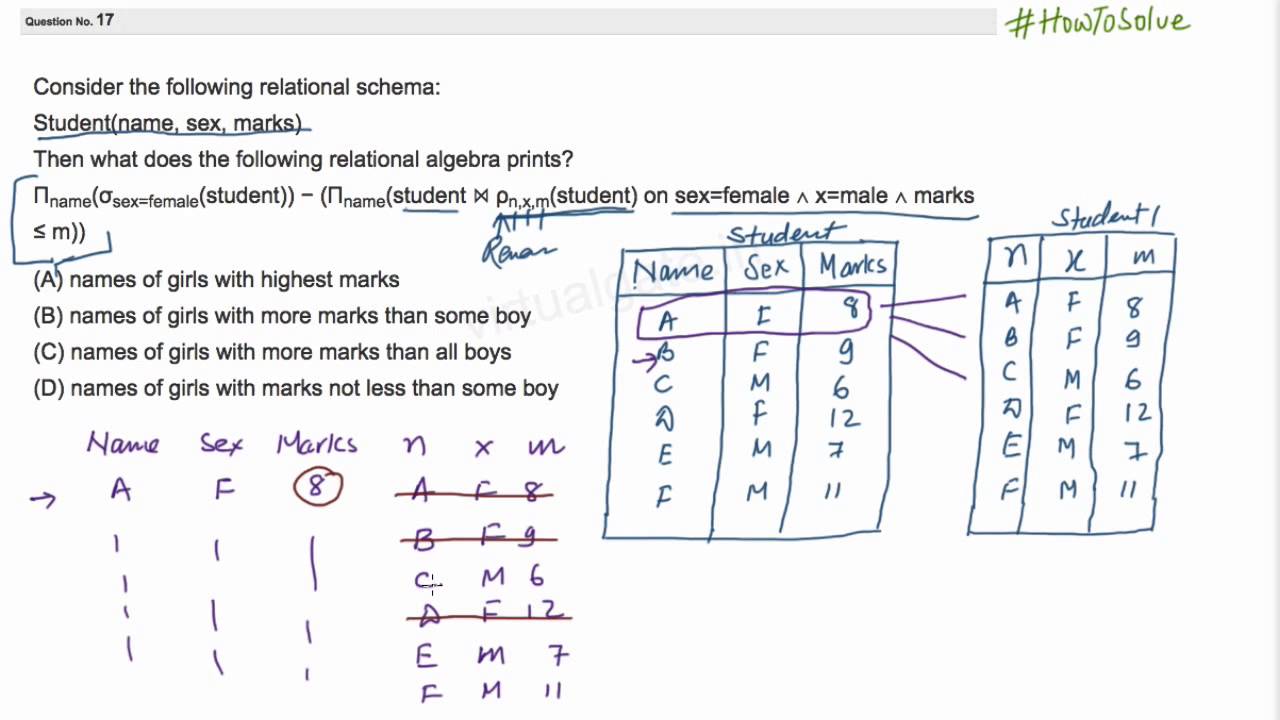 Question No. 17
#HowToSolve
Consider the following relational schema:
Student(name, sex, marks)
Then what does the following relational algebra prints?
Πname(σsex=female(student)) − (Πname(student ⋈ ρn,x,m(student) on sex=female ∧ x=male ∧ marks
≤ m))
(A) names of girls with highest marks
(B) names of girls with more marks than some boy
(C) names of girls with more marks than all boys
(D) names of girls with marks not less than some boy
Student
Name Sex Marks
A F 8
B F 9
C M 6
D F 12
E M 7
F M 11
Student1
n x m
A F 8
B F 9
C M 6
D F 12
E M 7
F M 11
Name Sex Marks n x m
→ A F 8 A F 8
B F 9
C M 6
D F 12
E m 7
F M 11